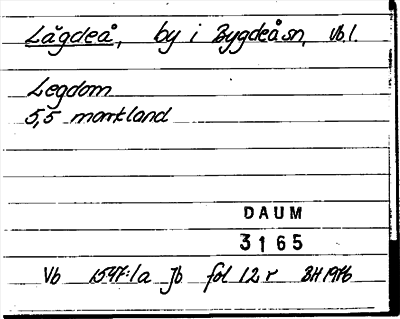 Lägdeå, by i Bygdeå sn, Vb.l.
Legdom
5,5 markland
DAUM
3165
Vb 1547:1a Jb fol 12 r BH 1976